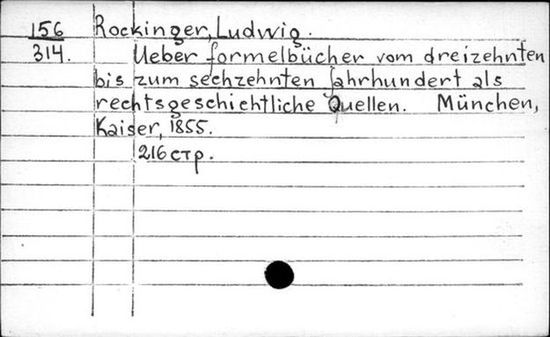 156 Rockinger, Ludwig.
314. Ueber formelbücher vom dreizehnten
bis zum sechzehnten jahrhundert als
rechtsgeschichtliche Quellen. München,
Kaiser, 1855.
216 стр.